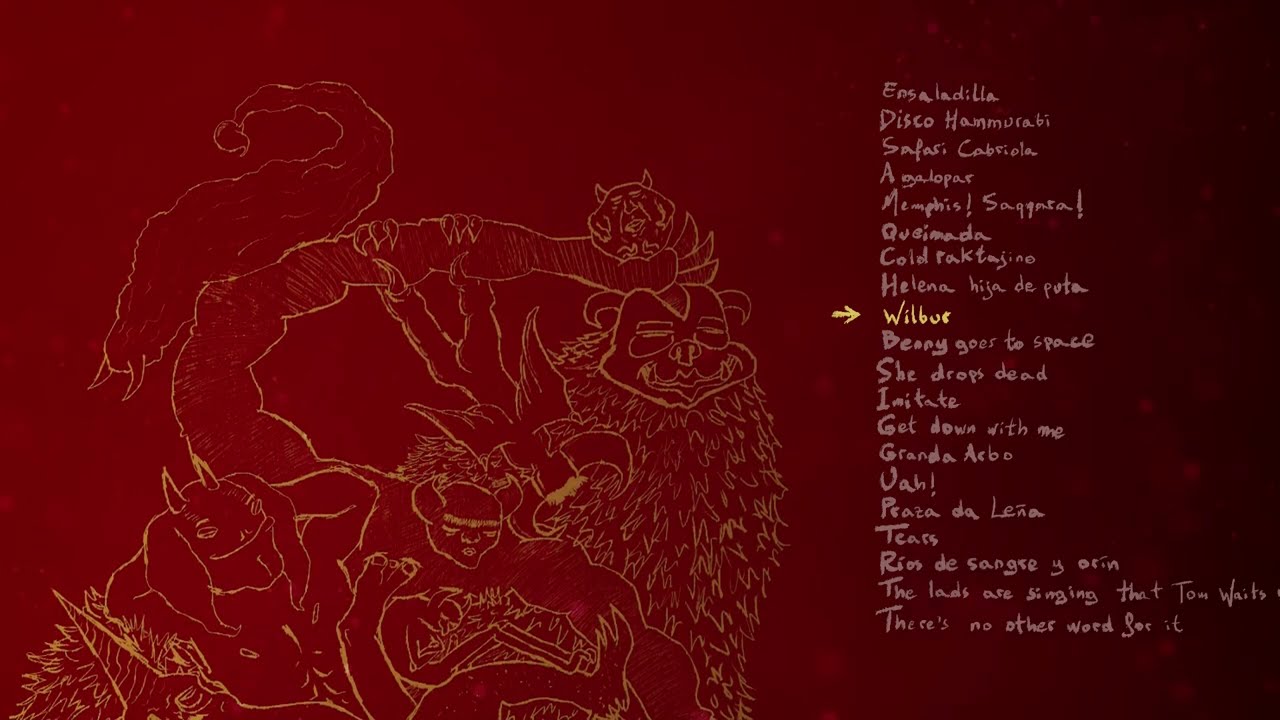 Ensaladilla
Disco Hammurabi
Safari Cabriola
A galopar
Memphis! Saqqara!
Queimada
Cold raktajino
Helena hija de puta
Wilbur
Benny goes to space
She drops dead
Imitate
Get down with me
Granda Arbo
Uah!
Praza da Leña
Tears
Ríos de sangre y orín
The lads are singing that Tom Waits
There's no other word for it